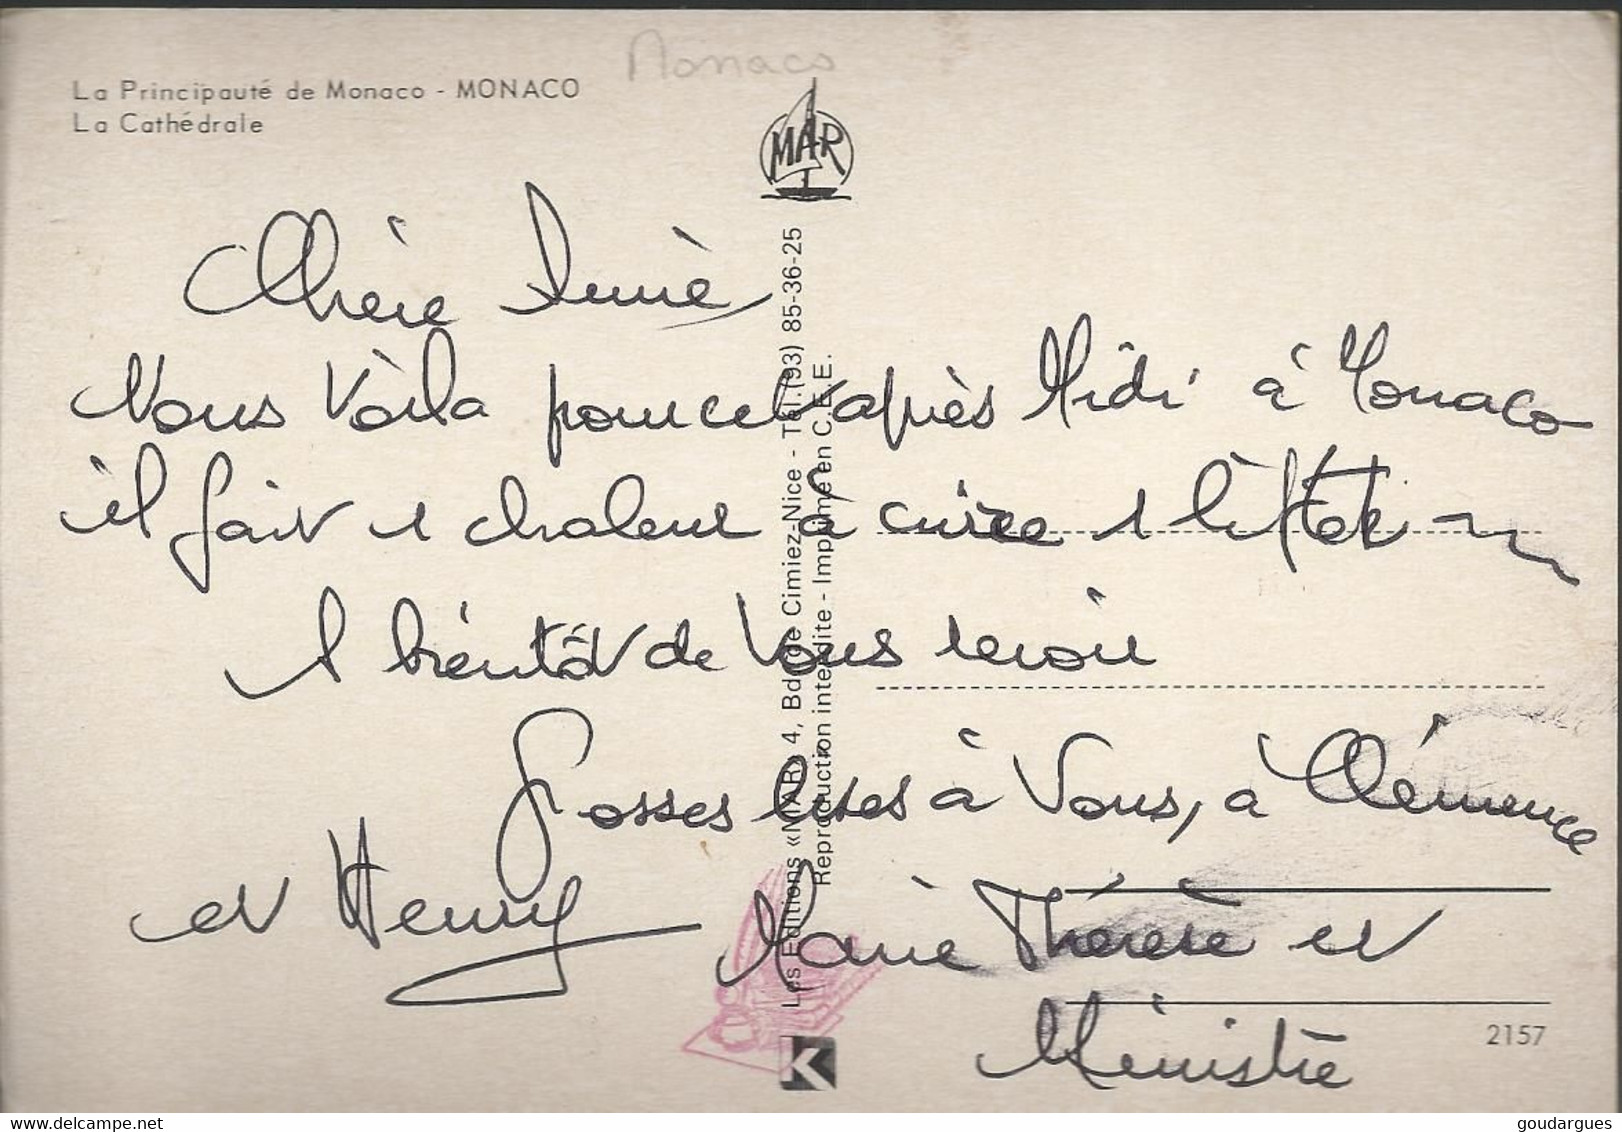 Monaco
La Principauté de Monaco - MONACO
La Cathédrale
MAR
Chère
Nous Voila pour cet après Midi à Monaco
il fait 1 chaleur à cuire 1 biftek
A bientôt de Vous revoir
Grosses bises à Vous, à Clémence
et Henry
Marie Thérèse et
Ministre
Les Editions «MAR» 4, Bd de Cimiez-Nice - Tél.(93) 85-36-25
Reproduction interdite - Imprimé en C.E.E.
K
2157
goudargues